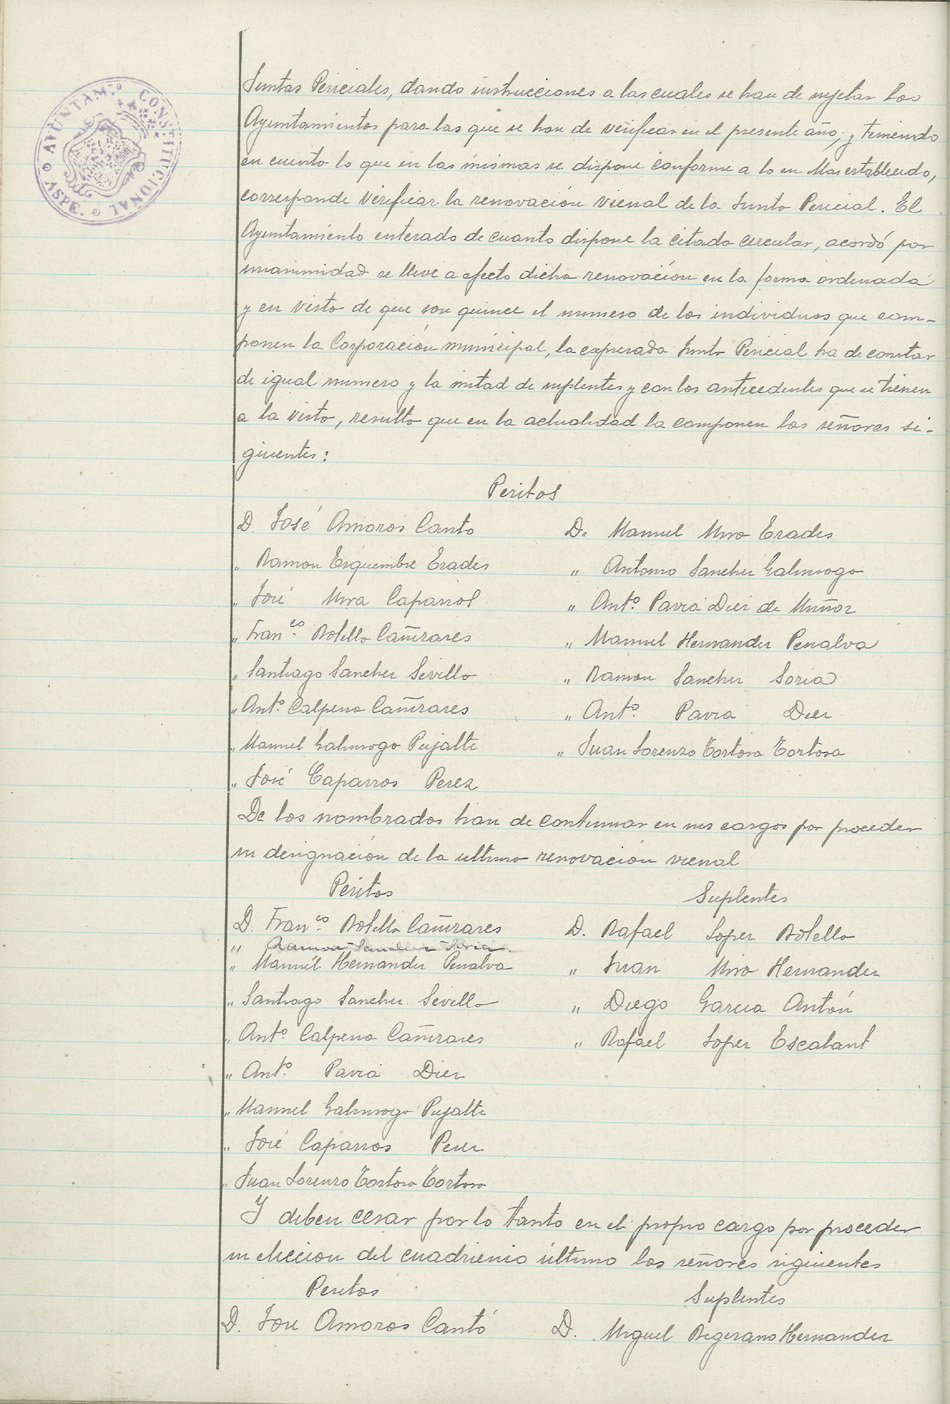 AYUNTAM.º CONSTITUCIONAL
ASPE.
Juntas Periciales, dando instrucciones a las cuales se han de sujetar los
Ayuntamientos para las que se han de verificar en el presente año, y teniendo
en cuenta lo que en las mismas se dispone conforme a lo en ellas establecido,
corresponde verificar la renovación vienal de la Junta Pericial. El
Ayuntamiento enterado de cuanto dispone la citada circular, acordó por
unanimidad se lleve a efecto dicha renovación en la forma ordenada
y en vista de que son quince el numero de los individuos que com-
ponen la Corporación municipal, la expresada Junta Pericial ha de constar
de igual numero y la mitad de suplentes y con los antecedentes que se tienen
a la vista, resulta que en la actualidad la componen los señores si-
guientes:
Peritos
D. José Amoros Canto D. Manuel Miro Erades
" Ramon Erquembre Erades " Antonio Sanchez Galinsogo
" José Mira Caparros " Antº Pavia Diez de Muñoz
" Franco Botella Cañizares " Manuel Hernandez Penalva
" Santiago Sanchez Sevilla " Ramon Sanchez Soria
" Antº Calpena Cañizares " Antº Pavia Diez
" Manuel Galinsogo Pujalte " Juan Lorenzo Tortosa Tortosa
" José Caparros Perez
De los nombrados han de continuar en sus cargos por proceder
su designación de la ultima renovación vienal
Peritos Suplentes
D. Franco Botella Cañizares D. Rafael Loper Botella
" Ramon Sanchez Soria
" Manuel Hernandez Penalva " Juan Miro Hernandez
" Santiago Sanchez Sevilla " Diego Garcia Antón
" Antº Calpena Cañizares " Rafael Loper Escalant
" Antº Pavia Diez
" Manuel Galinsogo Pujalte
" José Caparros Perez
" Juan Lorenzo Tortosa Tortosa
Y deben cesar por lo tanto en el propio cargo por proceder
su elección del cuadrienio último los señores siguientes
Peritos Suplentes
D. José Amoros Cantó D. Miguel Hernandez